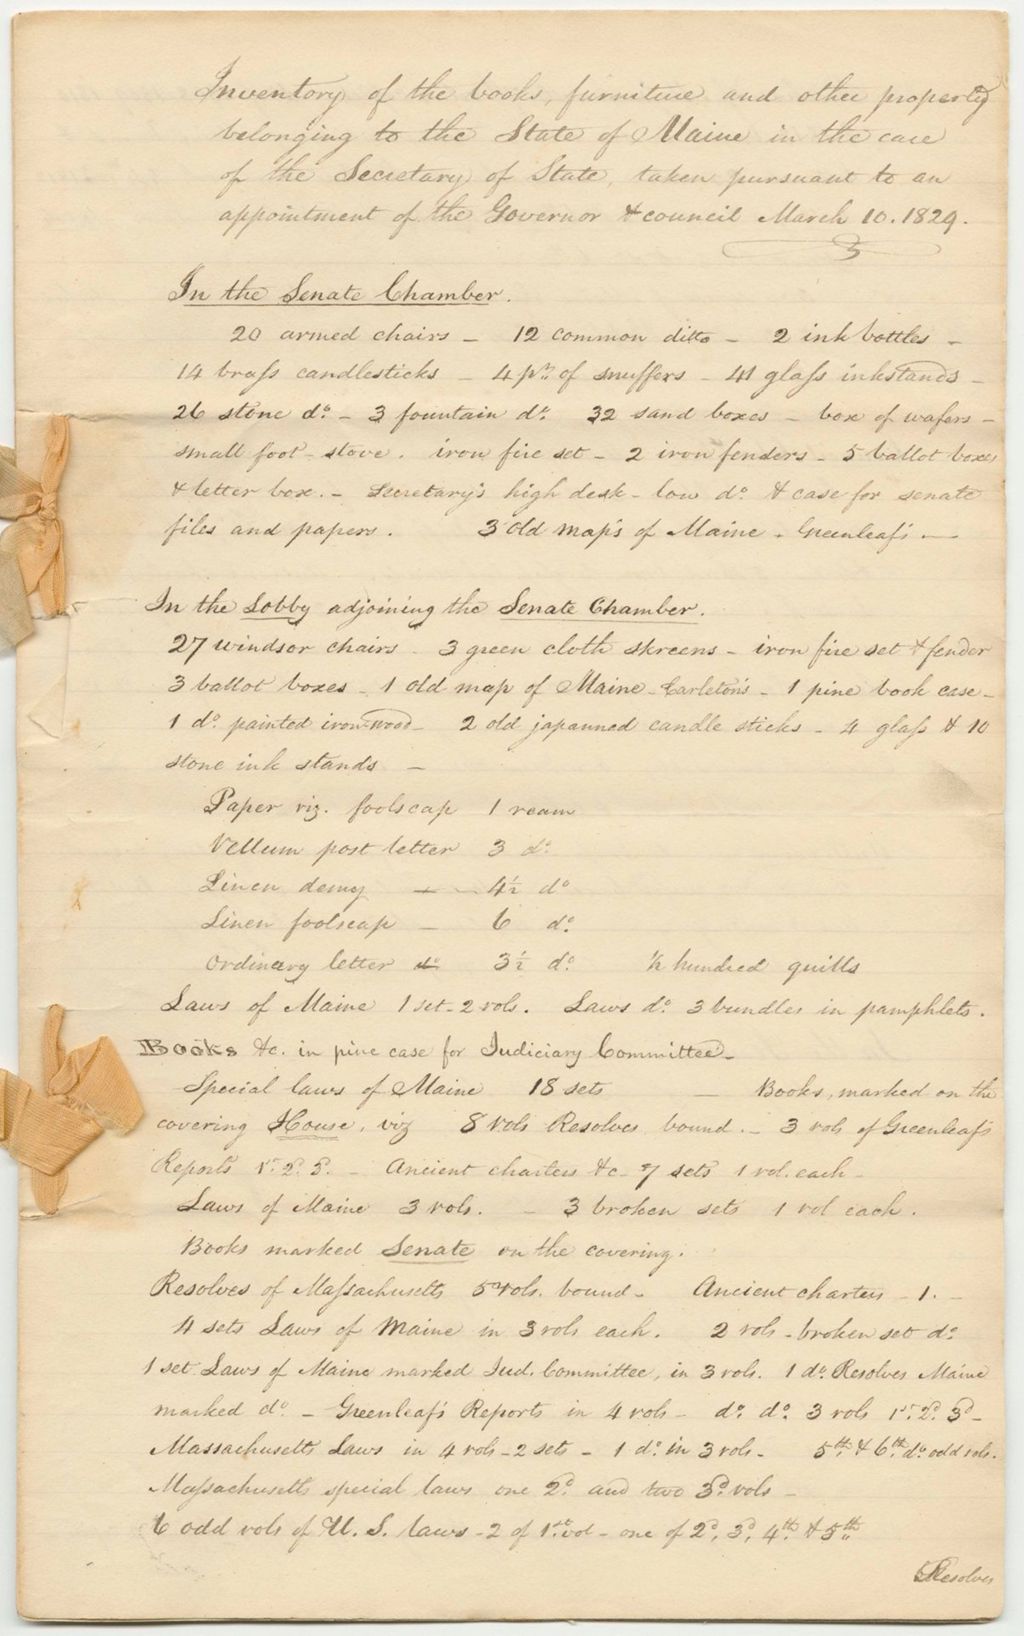 Inventory of the books, furniture and other property
belonging to the State of Maine in the care
of the Secretary of State, taken pursuant to an
appointment of the Governor & council March 10. 1829.
In the Senate Chamber.
20 armed chairs – 12 common ditto – 2 ink bottles –
14 brass candlesticks – 4 prs. of snuffers – 41 glass inkstands –
26 stone do. – 3 fountain do. 32 sand boxes – box of wafers –
small foot-stove. iron fire set – 2 iron fenders – 5 ballot boxes
& letter box. – Secretary's high desk – low do. & case for senate
files and papers. 3 old maps of Maine – Greenleaf's –
In the Lobby adjoining the Senate Chamber.
27 windsor chairs – 3 green cloth skreens – iron fire set & fender
3 ballot boxes – 1 old map of Maine – Carleton's – 1 pine book case –
1 do. painted iron-wood – 2 old japanned candle sticks – 4 glass & 10
stone ink stands –
Paper viz. foolscap 1 ream
Vellum post letter 3 do.
Linen demy – – 4½ do
Linen foolscap – 6 do.
Ordinary letter do 3½ do. ½ hundred quills
Laws of Maine 1 set – 2 vols. Laws do. 3 bundles in pamphlets.
Books &c. in pine case for Judiciary Committee –
Special laws of Maine 18 sets – Books, marked on the
covering House, viz 8 vols Resolves bound. – 3 vols of Greenleaf's
Reports 1st. 2d. 3d. – Ancient charters &c – 7 sets 1 vol. each –
Laws of Maine 3 vols. – 3 broken sets 1 vol each.
Books marked Senate on the covering.
Resolves of Massachusetts 5 vols. bound – Ancient charters – 1. –
4 sets Laws of Maine in 3 vols each. 2 vols – broken set do.
1 set Laws of Maine marked Jud. Committee, in 3 vols. 1 do. Resolves Maine
marked do – Greenleaf's Reports in 4 vols – do. do. 3 vols 1st. 2d. 3d –
Massachusetts Laws in 4 vols – 2 sets – 1 do. in 3 vols – 5th. & 6th. do. odd vols.
Massachusetts special laws one 2d. and two 3d. vols –
6 odd vols of U. S. laws – 2 of 1st. vol – one of 2d, 3d, 4th. & 5th.
Resolves